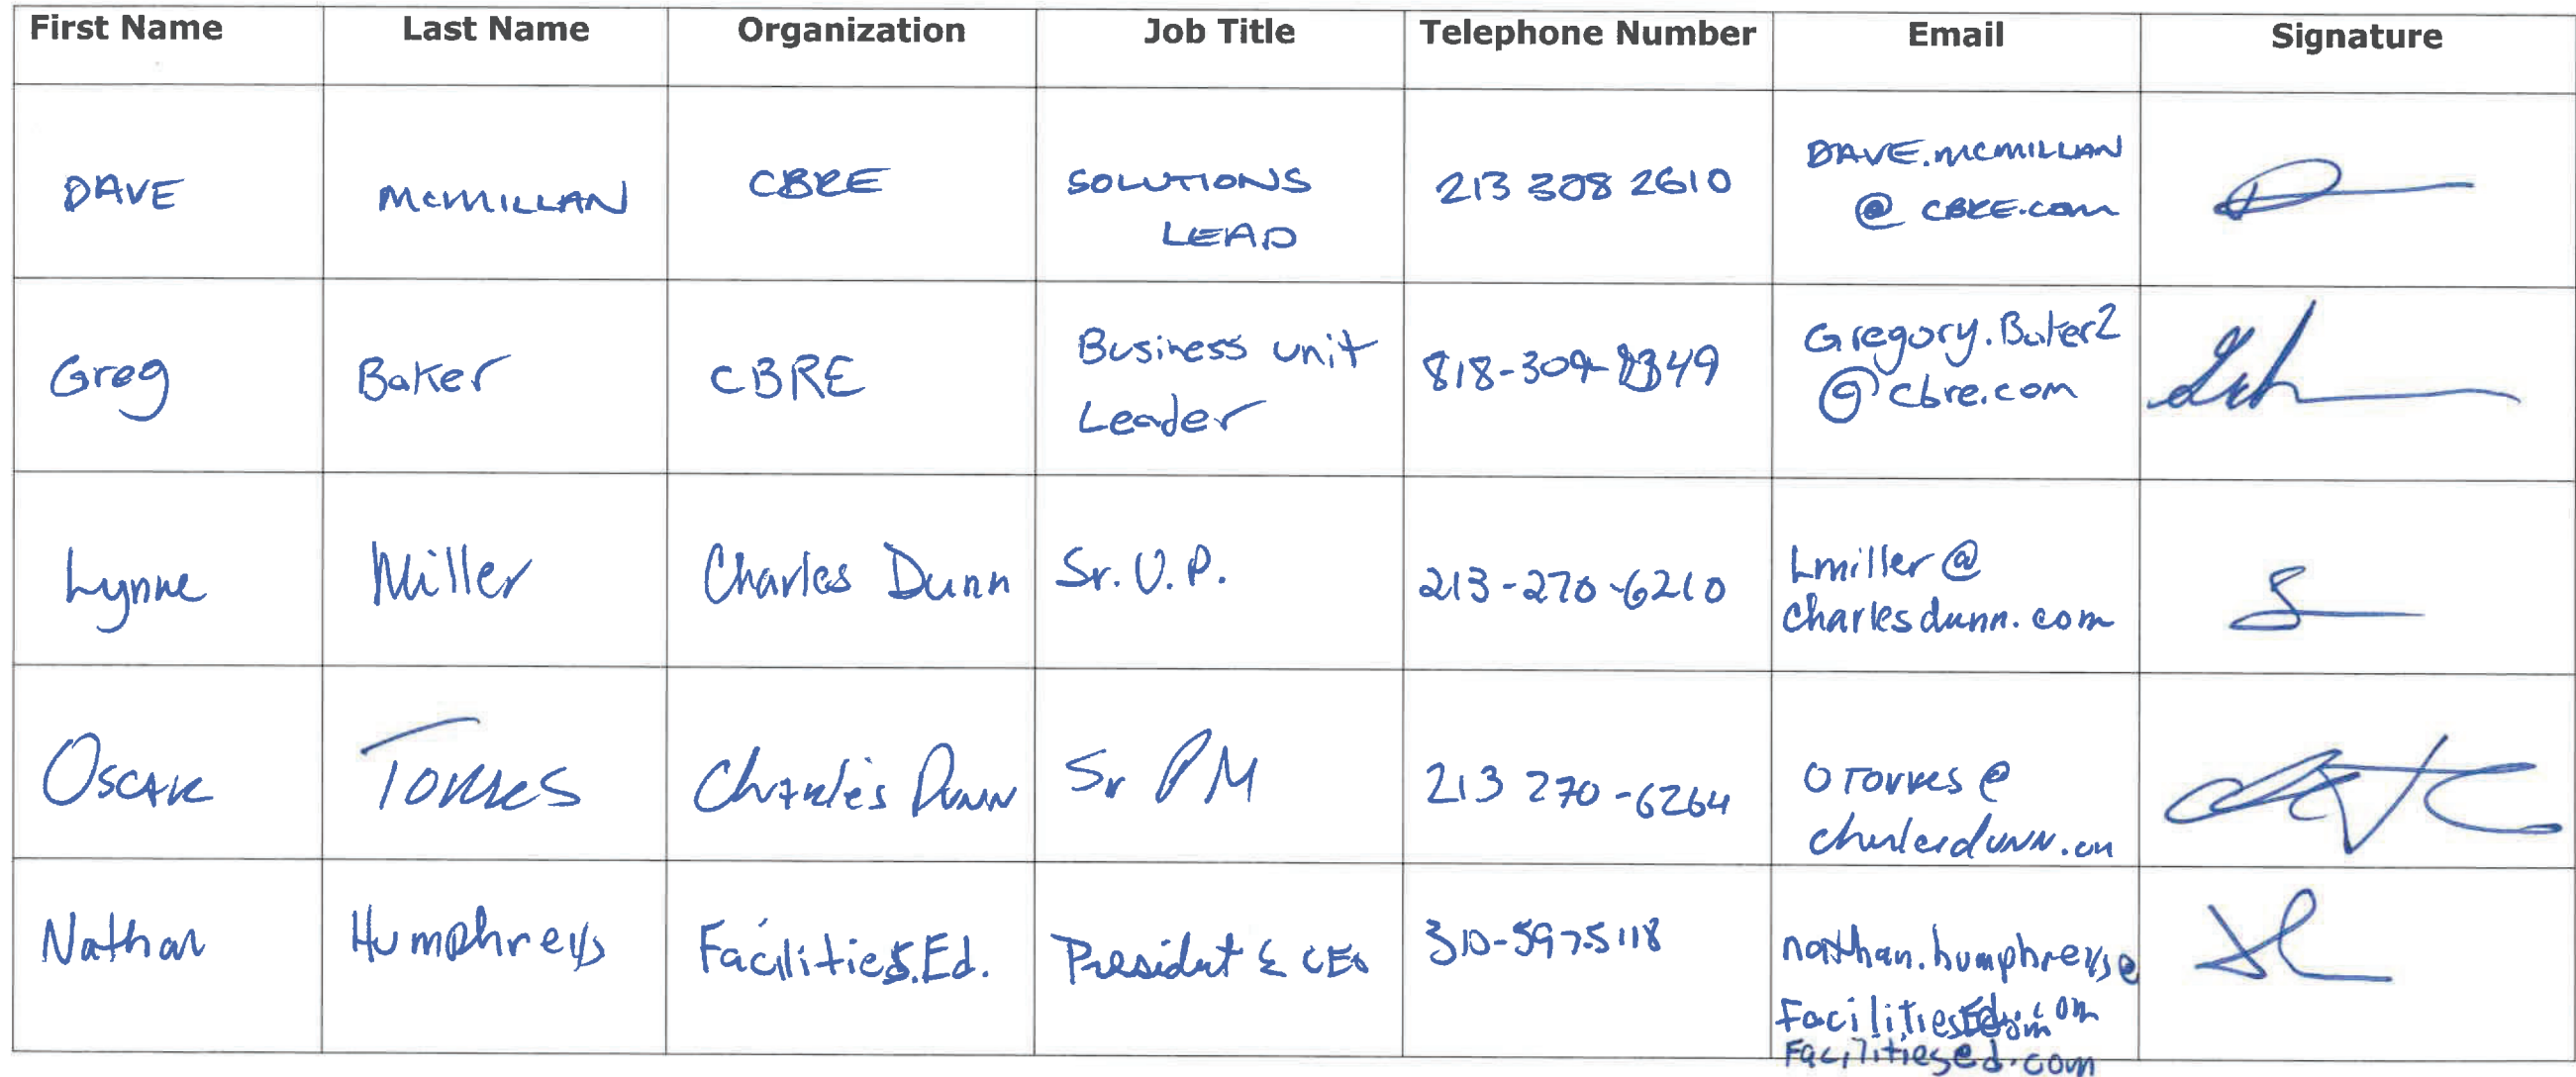 First Name Last Name Organization Job Title Telephone Number Email Signature
DAVE McMILLAN CBRE SOLUTIONS LEAD 213 308 2610 DAVE.MCMILLAN
@ CBRE.com
Greg Baker CBRE Business unit Leader 818-309-8349 Gregory.Baker2
@cbre.com
Lynne Miller Charles Dunn Sr. V.P. 213-270-6210 Lmiller@
charlesdunn.com
Oscar Torres Charles Dunn Sr PM 213 270-6264 OTorres@
Nathan Humphreys Facilities.Ed. President & CEO 310-597-5118 nathan.humphreys@
Facilitiesed.com